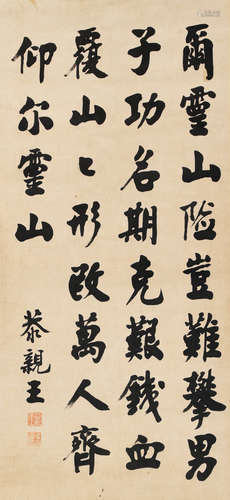 爾靈山险豈難攀男
子功名期克艱鐵血
覆山〻形改萬人齊
仰尔靈山
恭親王